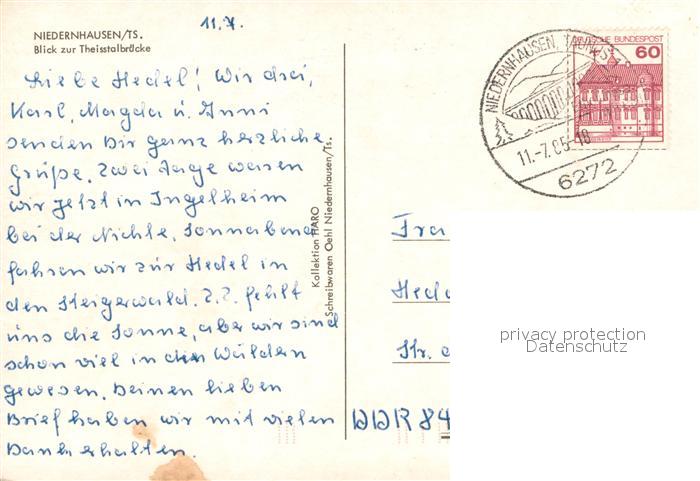 11.7.
NIEDERNHAUSEN/TS.
Blick zur Theisstalbrücke
Liebe Hedel! Wir drei,
Karl, Magda u. Anni
senden Dir ganz herzliche
Grüße. Zwei Tage waren
wir jetzt in Ingelheim
bei der Nichte, Sonnabend
fahren wir zur Hedel in
den Steigerwald. Z.Z. fehlt
uns die Sonne, aber wir sind
schon viel in den Wäldern
gewesen. Deinen lieben
Brief haben wir mit vielen
Dank erhalten.
Kollektion HARO
Schreibwaren Oehl Niedernhausen/Ts.
NIEDERNHAUSEN, TAUNUS 1
11.-7.85-18
6272
DEUTSCHE BUNDESPOST
60
Fra
Hed
Str.
DDR 84
privacy protection
Datenschutz